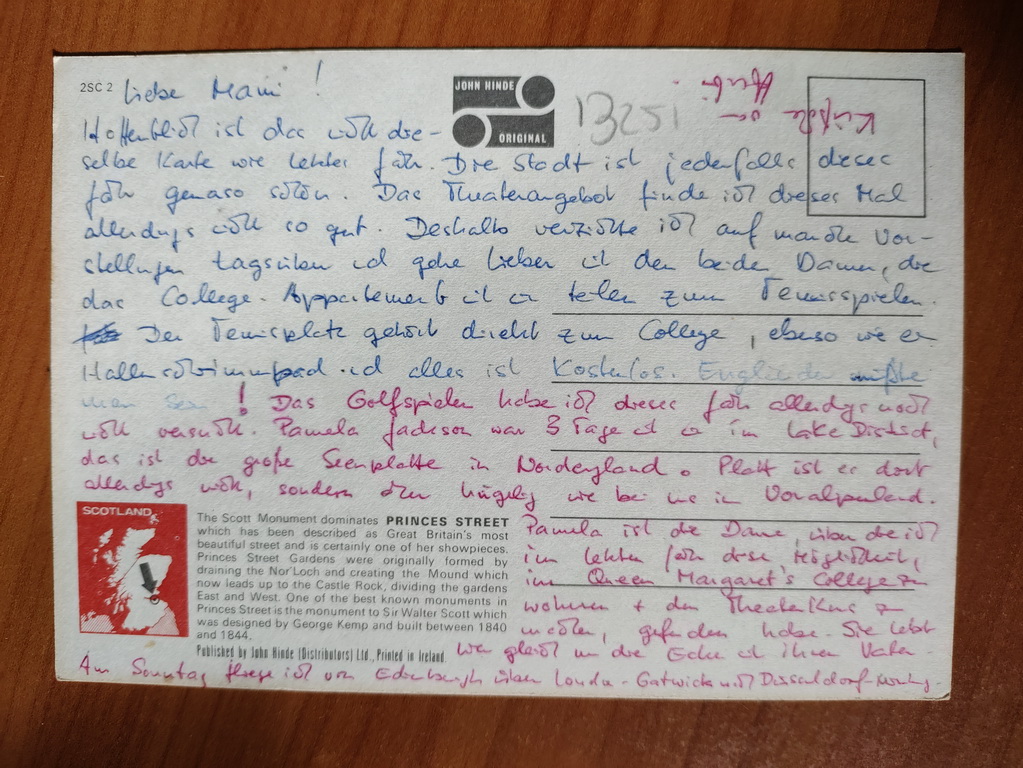 2SC 2 Liebe Mami!
JOHN HINDE
ORIGINAL
13251
Küßle von
Hoffentlich ist das nicht die-
selbe Karte wie letztes Jahr. Die Stadt ist jedenfalls dieses
Jahr genauso schön. Das Theaterangebot finde ich dieses Mal
allerdings nicht so gut. Deshalb verzichte ich auf manche Vor-
stellungen tagsüber und gehe lieber mit den beiden Damen, die
das College-Appartement mit mir teilen zum Tennisspielen.
Der Tennisplatz gehört direkt zum College, ebenso wie ein
Hallenschwimmbad und alles ist kostenlos. Engländer müßte
man sein! Das Golfspielen habe ich dieses Jahr allerdings noch
nicht versucht. Pamela Jackson war 3 Tage mit mir im Lake District,
das ist die große Seenplatte in Nordengland. Platt ist es dort
allerdings nicht, sondern eher hügelig wie bei uns im Voralpenland.
SCOTLAND
The Scott Monument dominates PRINCES STREET
which has been described as Great Britain's most
beautiful street and is certainly one of her showpieces.
Princes Street Gardens were originally formed by
draining the Nor'Loch and creating the Mound which
now leads up to the Castle Rock, dividing the gardens
East and West. One of the best known monuments in
Princes Street is the monument to Sir Walter Scott which
was designed by George Kemp and built between 1840
and 1844.
Published by John Hinde (Distributors) Ltd., Printed in Ireland.
Pamela ist die Dame, über die ich
im letzten Jahr diese Möglichkeit,
im Queen Margaret's College zu
wohnen + den Theaterkurs zu
machen, gefunden habe. Sie lebt
hier gleich um die Ecke mit ihrem Vater.
Am Sonntag fliege ich von Edinburgh über London-Gatwick nach Düsseldorf-